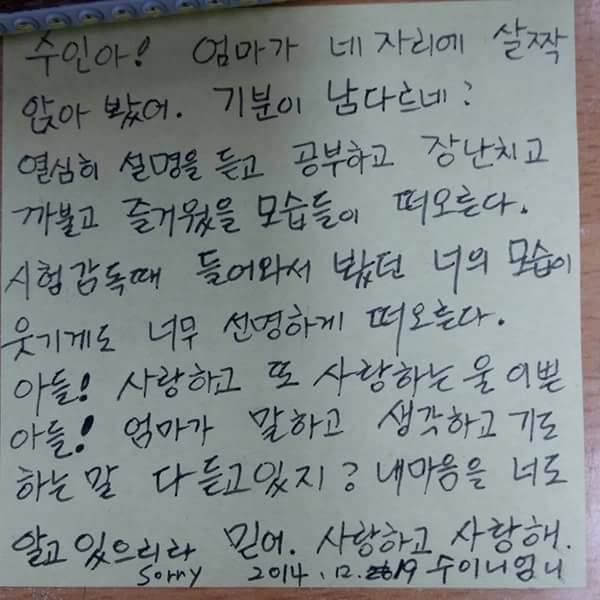 수인아! 엄마가 네 자리에 살짝
앉아 봤어. 기분이 남다르네?
열심히 설명을 듣고 공부하고 장난치고
까불고 즐거웠을 모습들이 떠오른다.
시험감독때 들어와서 봤던 너의 모습이
웃기게도 너무 선명하게 떠오른다.
아들! 사랑하고 또 사랑하는 울 이쁜
아들! 엄마가 말하고 생각하고 기도
하는 말 다 듣고 있지? 내마음을 너도
알고 있으리라 믿어. 사랑하고 사랑해.
Sorry 2014.12.19 수이니엄니